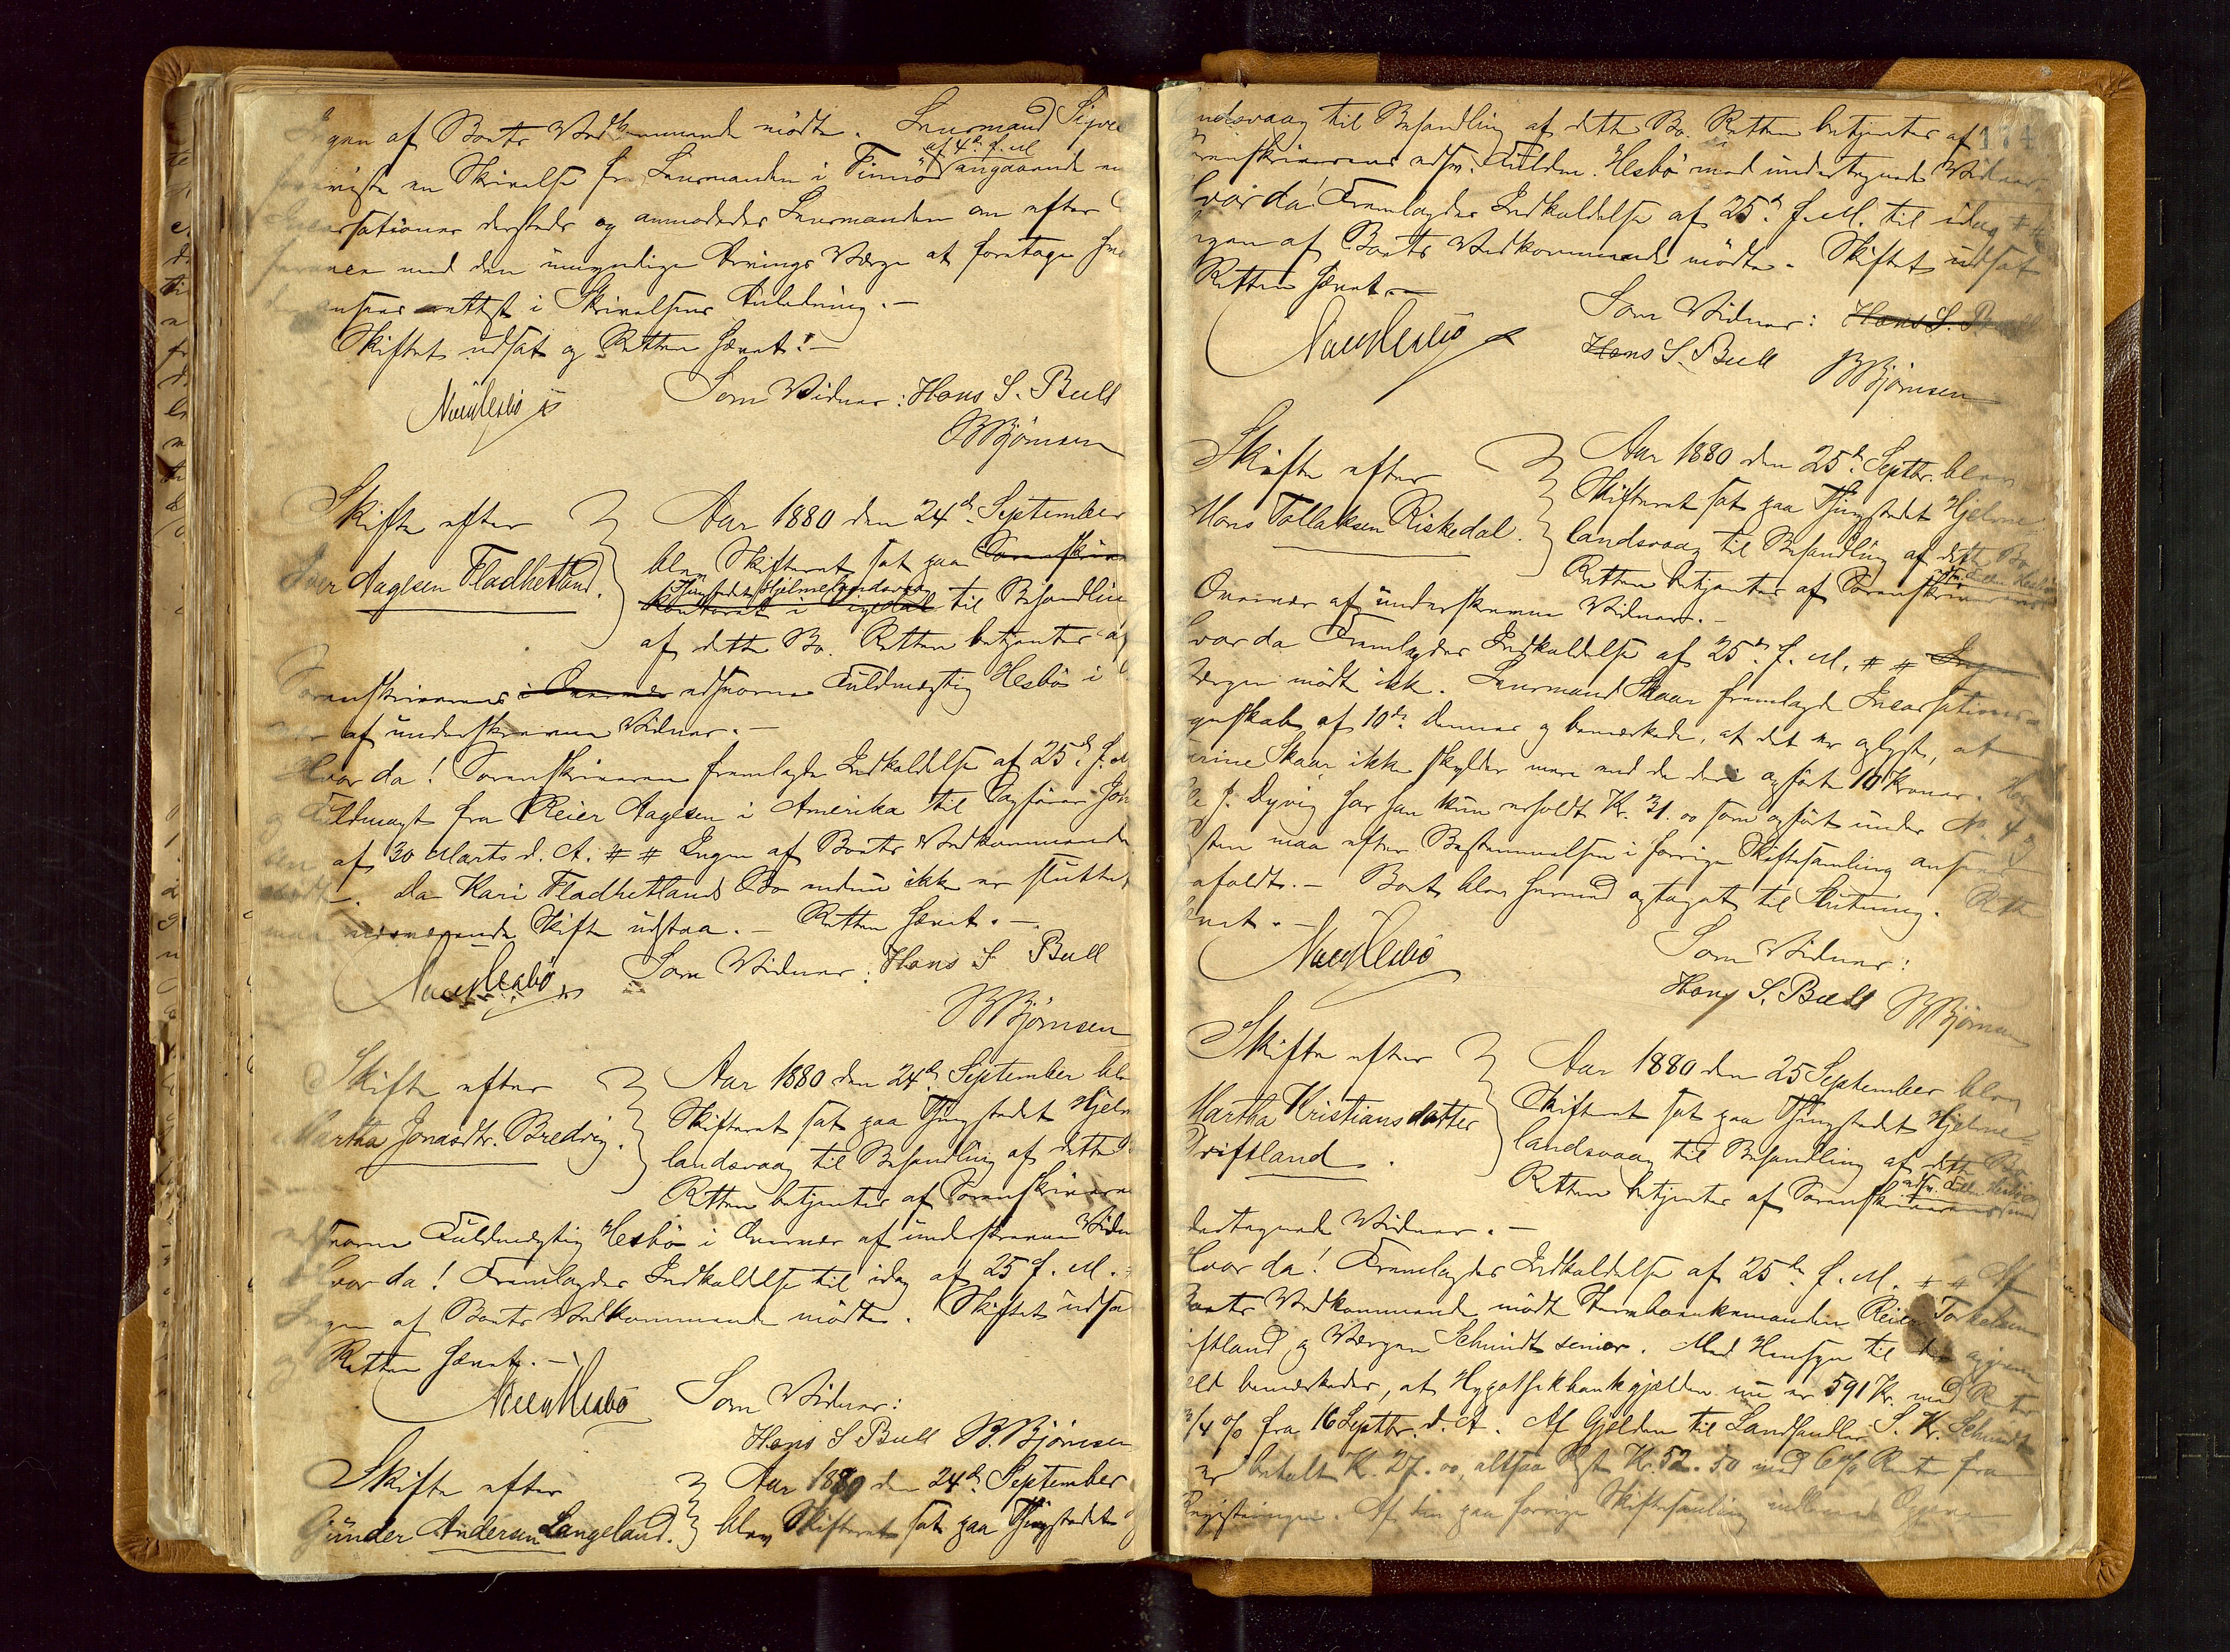 Ingen af Boets Vedkommende mødte. Lensmand Sigve
foreviste en Skrivelse fra Lensmanden i Finnø af 4de f. M. angaaende en
Incassationer dersteds og anmodedes Lensmanden om efter
med den umyndige Arvings Værge at foretage
ansees rettest i Skrivelsens Anledning.-
Skiftet udsat og Retten hævet!-
Som Vidner: Hans S. Bull
B Bjørnsen
Skifte efter
Iver Aagesen Fladhetland.
Aar 1880 den 24de September
blev Skifteret sat paa Sorenskriver
Thingstedet Hjelmelandsvaag
Kontoret i til Behandling
af dette Bo. Retten betjentes af
Sorenskriverens i Overvær edsvorne Fuldmægtig Hesbø i
af underskrevne Vidner.-
Hvor da! Sorenskriveren fremlagde Indkaldelse af 25de f. M
og Fuldmagt fra Reier Aagesen i Amerika til Sagfører
af 30 Marts d. A. # # Ingen af Boets Vedkommende
mødte. Da Kari Fladhetlands Bo endnu ikke er sluttet
maa nærværende Skifte udstaa.- Retten hævet.-
Hesbø Som Vidner: Hans S Bull
B Bjørnsen
Skifte efter
Martha Jonasdtr. Bredvig.
Aar 1880 den 24de September blev
Skifteret sat paa Thingstedet Hjelme
landsvaag til Behandling af dette
Retten betjentes af Sorenskriverens
edsvorne Fuldmægtig Hesbø i Overvær af underskrevne Vidner
Hvor da! Fremlagdes Indkaldelse til idag af 25 f. M.
Ingen af Boets Vedkommende mødte. Skiftet udsat
og Retten hævet.-
Hesbø Som Vidner:
Hans S Bull B. Bjørnsen
Skifte efter
Gunder Andersen Langeland.
Aar 1880 den 24de September
blev Skifteret sat paa Thingstedet
174
landsvaag til Behandling af dette Bo. Retten betjentes af
Sorenskriverens edsv. Fuldm. Hesbø med undertegnede Vidner
Hvor da! Fremlagdes Indkaldelse af 25de f. M. til idag # #
Ingen af Boets Vedkommende mødte. Skiftet udsat
Retten hævet.-
Hesbø
Som Vidner: Hans S. Bull
Hans S. Bull
B Bjørnsen
Skifte efter
Mons Tollaksen Riskedal.
Aar 1880 den 25de Septbr. blev
Skifteret sat paa Thingstedet Hjelme
landsvaag til Behandling af dette Bo
Retten betjentes af Sorenskriverens edsv. Fuldm. Hesbø
Overvær af underskrevne Vidner.-
Hvor da Fremlagdes Indkaldelse af 25de f. M. # # Ingen
Værgen mødt ikke. Lensmand Skaar fremlagde Incassations
regnskab af 10de dennes og bemærkede, at det er oplyst, at
Skaar ikke skylder mere end de deri opførte 10 Kroner.
J. Dyvig har han kun erholdt Kr. 31.00 som opført under No. 4 og
Resten maa efter Bestemmelsen i forrige Skiftesamling ansees
afaldt.- Boet blev hermed optaget til Slutning. Retten
hævet.-
Hesbø
Som Vidner:
Hans S. Bull B Bjørnsen
Skifte efter
Martha Kristiansdatter
Driftland.
Aar 1880 den 25 September blev
Skifteret sat paa Thingstedet Hjelme
landsvaag til Behandling af dette Bo
Retten betjentes af Sorenskriverens edsv. Fuldm. Hesbø med
undertegnede Vidner.-
Hvor da! Fremlagdes Indkaldelse af 25de f. M. # # Af
Boets Vedkommende mødt Stervboenkemanden Reier Torkelsen
Driftland og Værgen Schmidt senior. Med Hensyn til den opgivne
Gjeld bemærkedes, at Hypothekbankgjælden nu er 591 Kr. med Renter
3/4 % fra 16 Septbr. d. A. Af Gjelden til Landhandler S. Kr. Schmidt
er betalt Kr. 27.00, altsaa Rest Kr. 52.50 med 6 % Renter fra
Registreringen. Af den paa forrige Skiftesamling